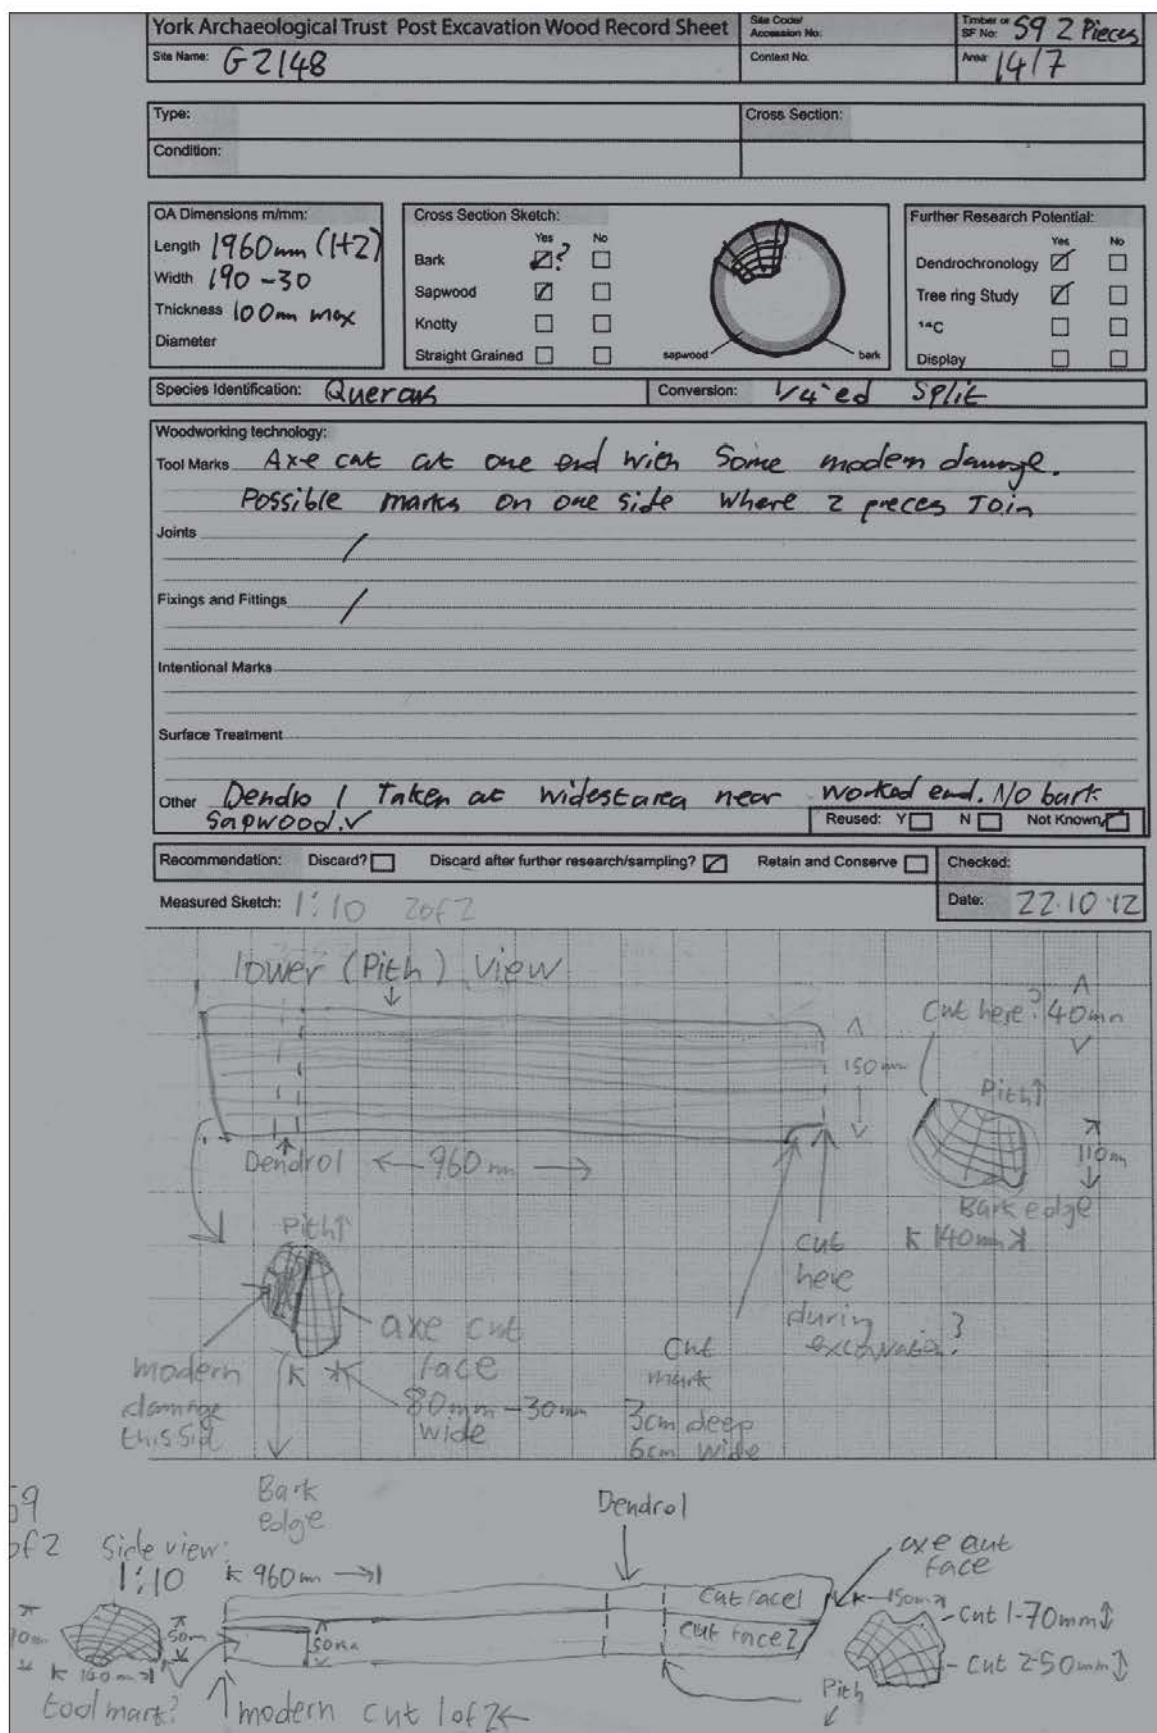 York Archaeological Trust Post Excavation Wood Record Sheet
Site Code/
Accession No:
Timber or
SF No: 59 2 Pieces
Site Name: G2148
Context No:
Area: 14/7
Type:
Cross Section:
Condition:
OA Dimensions m/mm:
Length 1960mm (1+2)
Width 190-30
Thickness 100mm max
Diameter
Cross Section Sketch:
Yes No
Bark ?
Sapwood
Knotty
Straight Grained
sapwood
bark
Further Research Potential:
Yes No
Dendrochronology
Tree ring Study
¹⁴C
Display
Species Identification: Quercus
Conversion: 1/4'ed Split
Woodworking technology:
Tool Marks Axe cut at one end with Some modern damage.
Possible marks on one side where 2 pieces Join
Joints /
Fixings and Fittings /
Intentional Marks
Surface Treatment
Other Dendro 1 Taken at widest area near worked end. No bark
Sapwood. ✓
Reused: Y N Not Known
Recommendation: Discard? Discard after further research/sampling? Retain and Conserve
Checked:
Measured Sketch: 1:10 2 of 2
Date: 22.10.12
lower (Pith) View
Cut here? 40mm
150mm
Pith↑
Dendro1 ← 960mm →
110m
Bark edge
140mm
Pith↑
cut
here
during
excavation?
axe cut
face
modern
damage
this sid
80mm-30mm
wide
Cut
mark
3cm deep
6cm wide
Bark
edge
Dendro1
59
of 2
Side view:
1:10
960m
axe cut
face
Cut face 1
Cut face 2
150m
Cut 1-70mm
Cut 2-50mm
50m
50mm
140m
tool mark?
modern cut 1 of 2
Pith